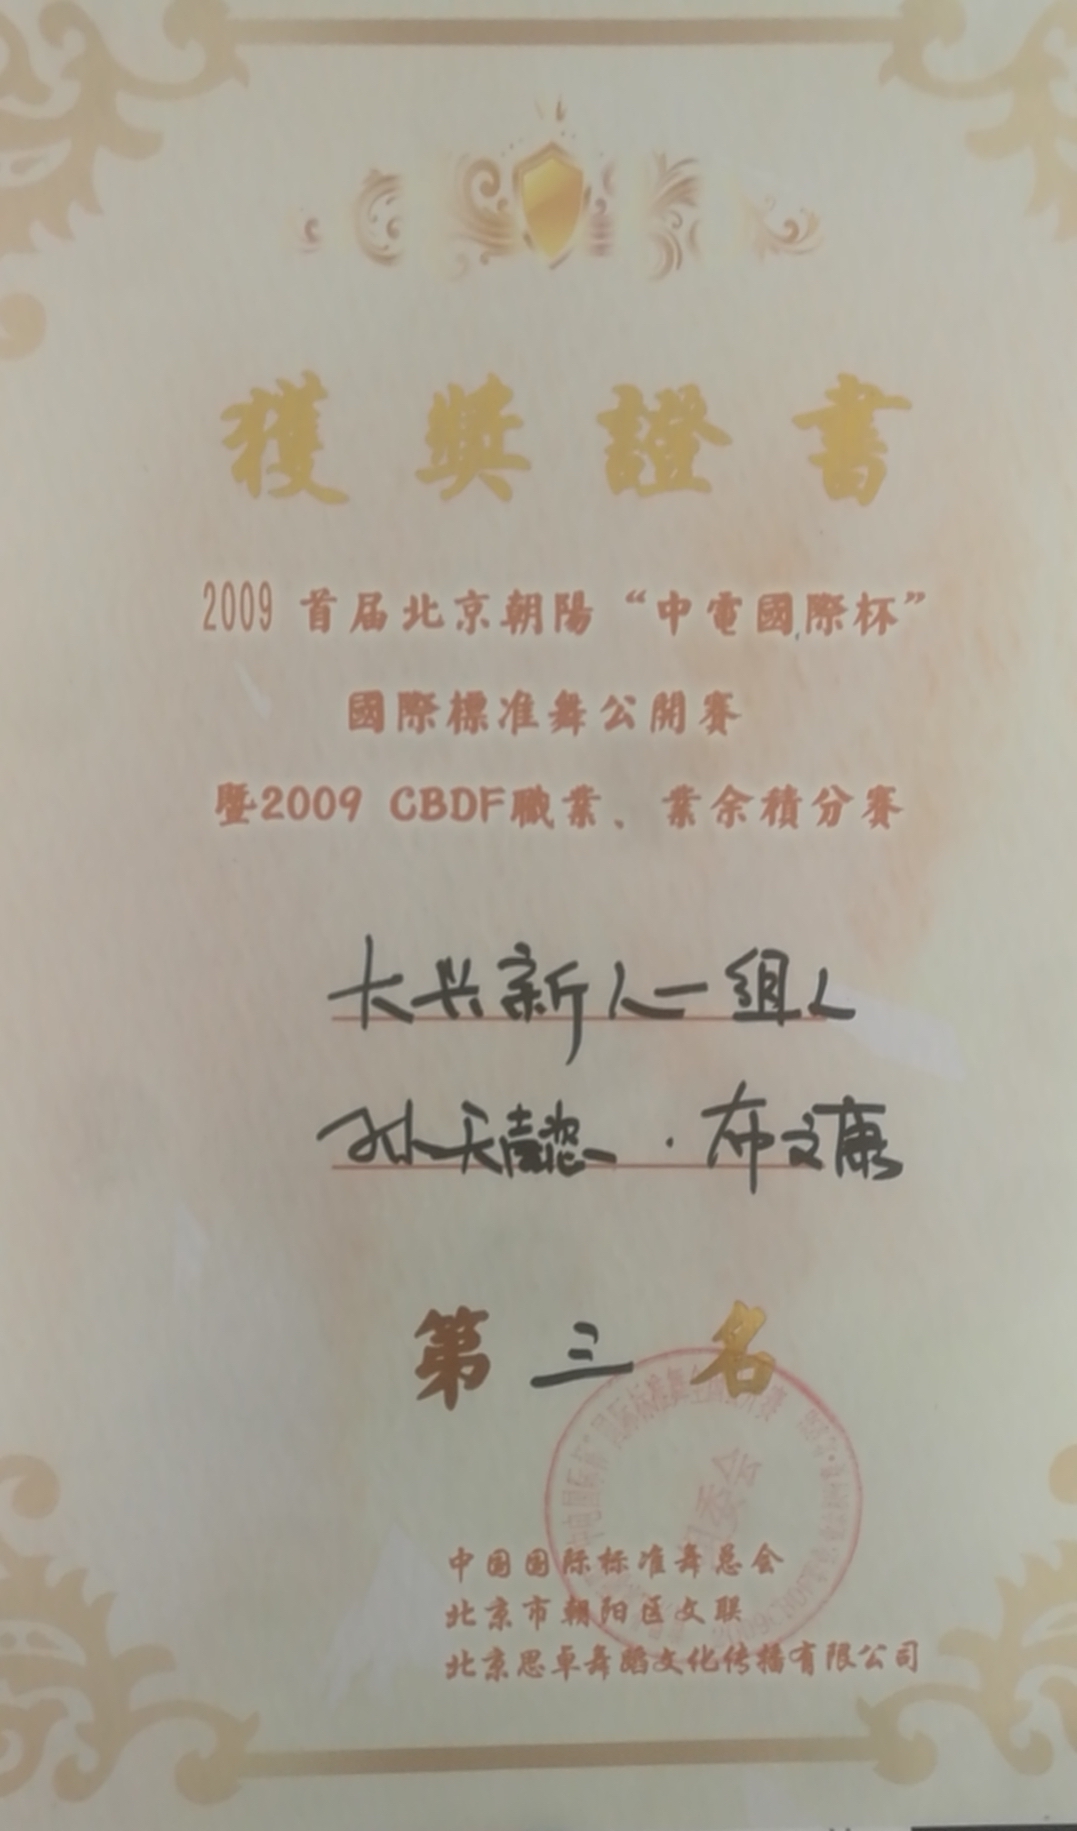 獲獎證書
2009 首届北京朝陽“中電國際杯”
國際標准舞公開賽
暨2009 CBDF職業、業余積分賽
大兴新人一組人
孙天懿 · 布文康
第三名
中国国际标准舞总会
北京市朝阳区文联
北京思卓舞蹈文化传播有限公司
组委会